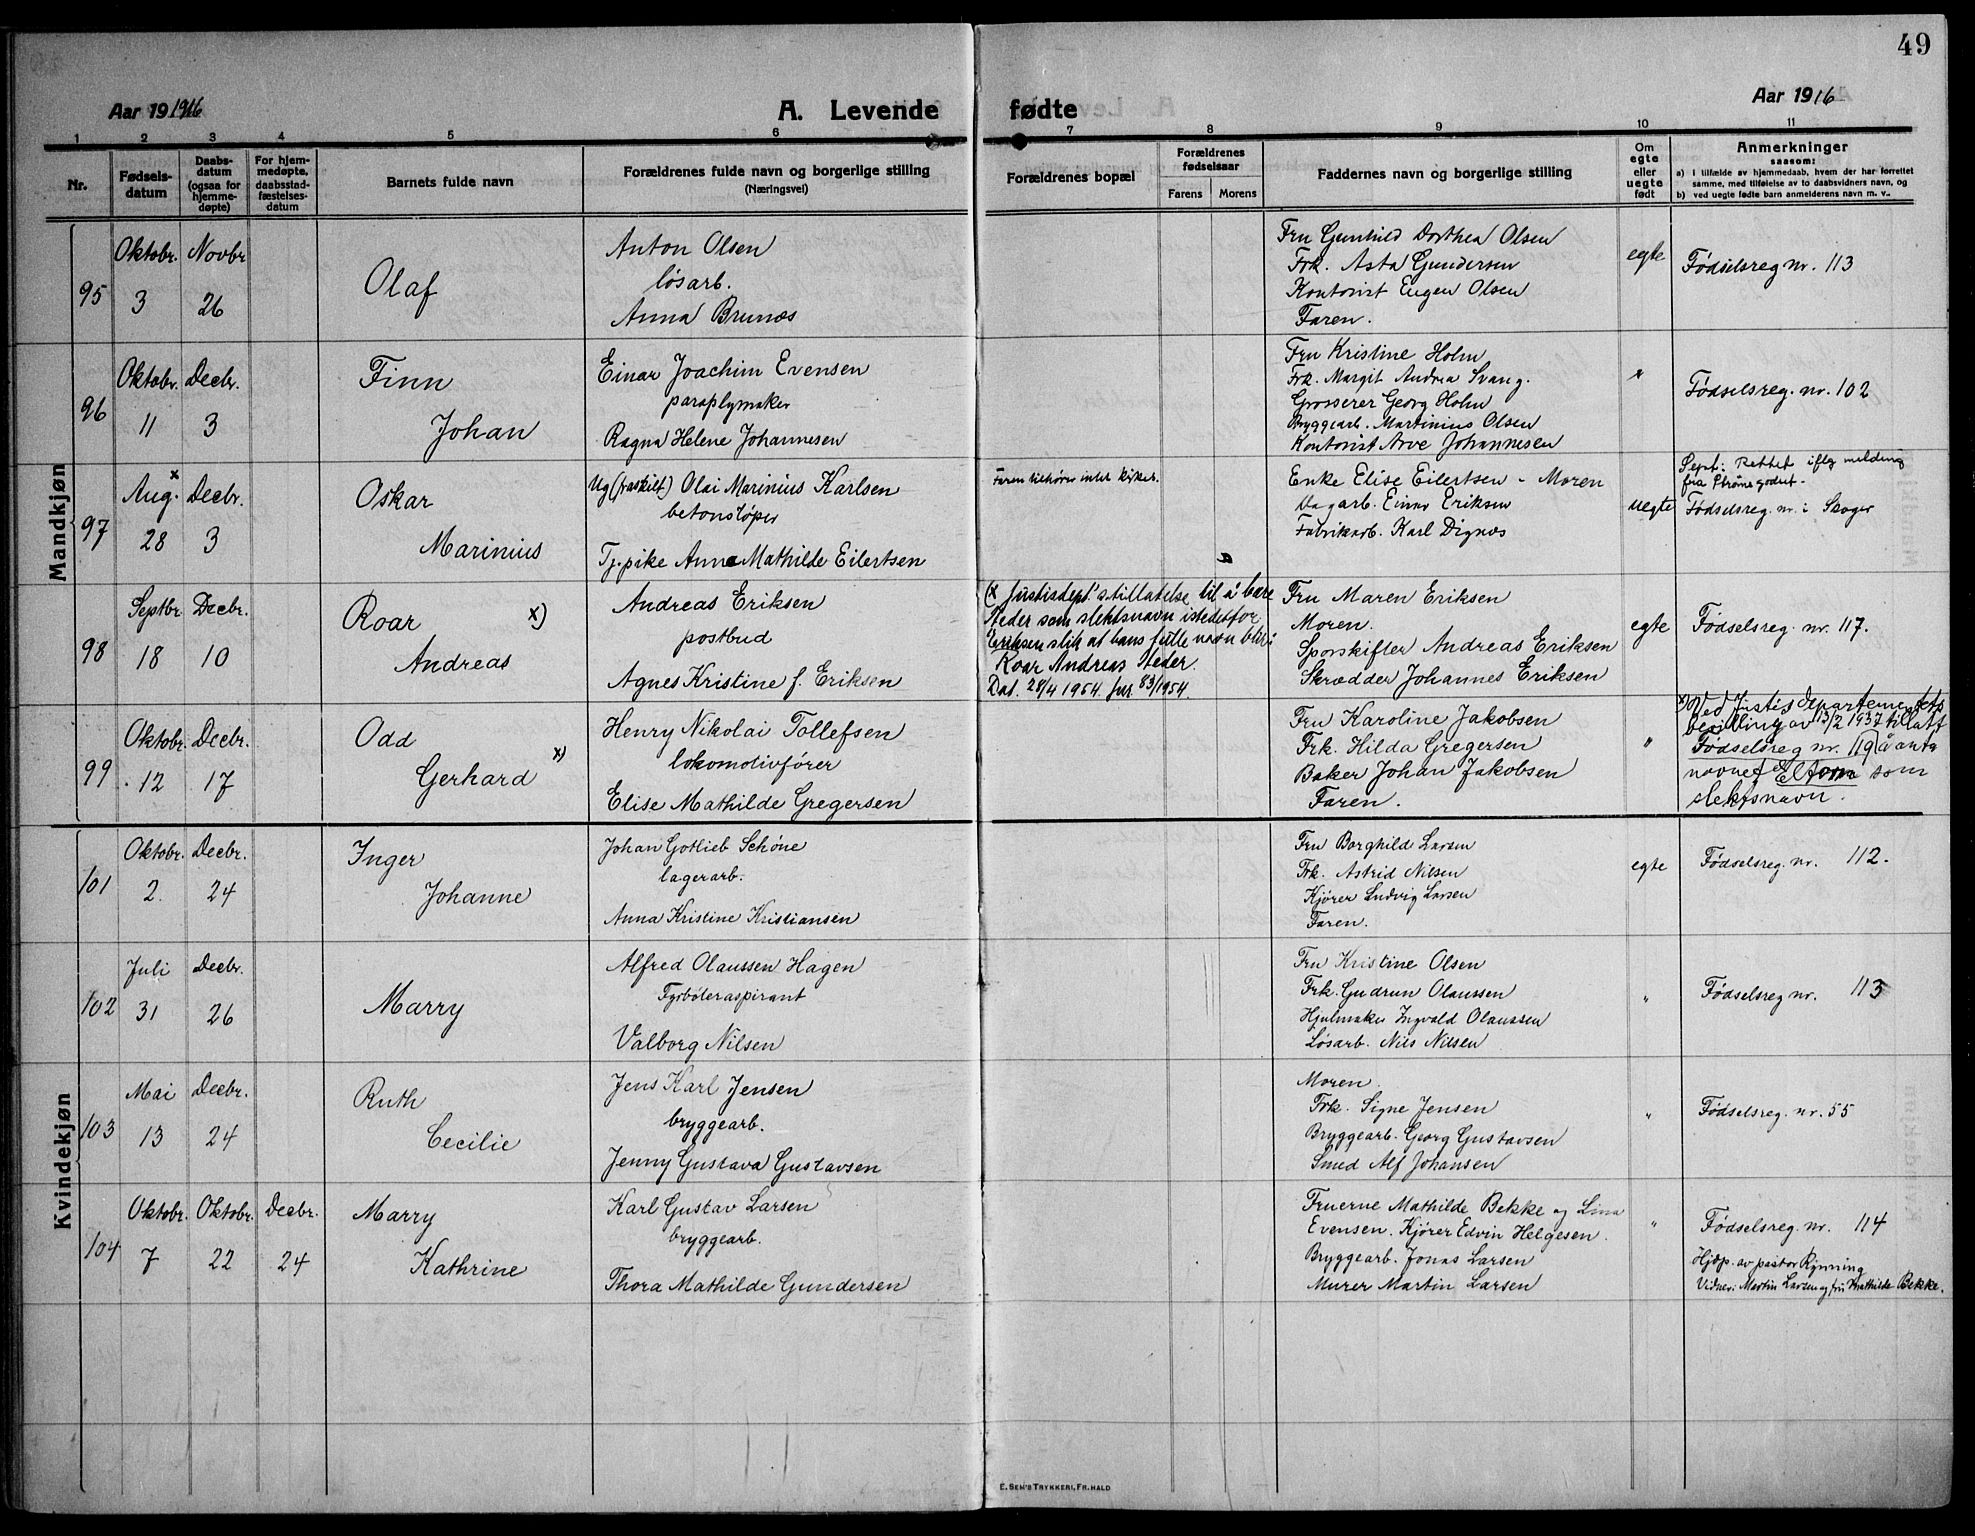 49
Aar 1916
A. Levende fødte
Aar 1916
1 2 3 4 5 6 7 8 9 10 11
Nr.
Fødsels-
datum
Daabs-
datum
(ogsaa for
hjemme-
døpte)
For hjem-
medøpte,
daabsstad-
fæstelses-
datum
Barnets fulde navn
Forældrenes fulde navn og borgerlige stilling
(Næringsvei)
Forældrenes bopæl
Forældrenes
fødselsaar
Farens Morens
Faddernes navn og borgerlige stilling
Om
egte
eller
uegte
født
Anmerkninger
saasom:
a) I tilfælde av hjemmedaab, hvem der har forrettet
samme, med tilføielse av to daabsvidners navn, og
b) ved uegte fødte barn anmelderens navn m. v.
Mandkjøn
95
Oktobr. Novbr
3 26
Olaf
Anton Olsen
løsarb.
Anna Brunæs
Fru Gunhild Dorthea Olsen
Frk. Asta Gundersen
Kontorist Eugen Olsen
Faren.
egte
Fødselsreg nr. 113
96
Oktobr. Decbr.
11 3
Finn
Johan
Einar Joachim Evensen
paraplymaker
Ragna Helene Johannesen
Fru Kristine Holm
Frk. Margit Andrea Svang.
Grosserer Georg Holm
Bryggearb. Martinius Olsen
Kontorist Arve Johannesen
"
Fødselsreg. nr. 102
97
Aug. x Decbr.
28 3
Oskar
Marinius
Ug (fraskilt) Olai Marinius Karlsen
betonstøper
Tj. pike Anna Mathilde Eilertsen
Faren tilhører intet kirkes.
Enke Elise Eilertsen - Moren
Vagarb. Einar Eriksen
Fabrikarb. Karl Dignæs
uegte
Sept: Rettet iflg melding
fra Strømsgodset.
Fødselsreg. nr. i Skoger
98
Septbr. Decbr.
18 10
Roar x)
Andreas
Andreas Eriksen
postbud
Agnes Kristine f. Eriksen
(x Justisdept.' stillatelse til å bære
Steder som slektsnavn istedetfor
Eriksen slik at hans fulle navn blir:
Roar Andreas Steder.
Dat. 28/4 1954. Jnr 83/1954.
Fru Maren Eriksen
Moren.
Sporskifter Andreas Eriksen
Skrædder Johannes Eriksen
egte
Fødselsreg. nr. 117.
99
Oktobr. Decbr.
12 17
Odd
Gerhard x)
Henry Nikolai Tollefsen
lokomotivfører
Elise Mathilde Gregersen
Fru Karoline Jakobsen
Frk. Hilda Gregersen
Baker Johan Jakobsen
Faren.
"
x) Ved Justisdepartementets
bevilling av 13/2 1937 tillatt
Fødselsreg nr. 119 å anta
navnet Eltom som
slektsnavn.
Kvindekjøn
101
Oktobr. Decbr.
2. 24
Inger
Johanne
Johan Gotlieb Schøne
lagerarb.
Anna Kristine Kristiansen
Fru Borghild Larsen
Frk. Astrid Nilsen
Kjører Ludvig Larsen
Faren.
egte
Fødselsreg. nr. 112.
102
Juli Decbr.
31 26
Marry
Alfred Olaussen Hagen
Fyrbøteraspirant
Valborg Nilsen
Fru Kristine Olsen
Frk. Gudrun Olaussen
Hjulmaker Ingvald Olaussen
Løsarb. Nils Nilsen
"
Fødselsreg nr. 113
103
Mai Decbr.
13 24
Ruth
Cecilie
Jens Karl Jensen
bryggearb.
Jenny Gustava Gustavsen
Moren.
Frk. Signe Jensen
Bryggearb. Georg Gustavsen
Smed Alf Johansen
"
Fødselsreg. nr. 55
104
Oktobr. Oktobr. Decbr.
7 22 24
Marry
Kathrine
Karl Gustav Larsen
bryggearb.
Thora Mathilde Gundersen
Fruerne Mathilde Bekke og Lina
Evensen. Kjører Edvin Helgesen.
Bryggearb. Jonas Larsen
Murer Martin Larsen
"
Fødselsreg nr. 114
Hjdp. av pastor Rynning
Vidner: Martin Larsen og fru Mathilde Bekke.
E. SEM'S TRYKKERI, FR. HALD